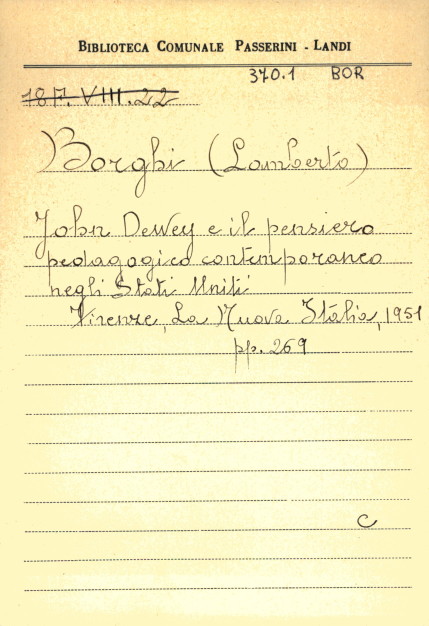 BIBLIOTECA COMUNALE PASSERINI - LANDI
370.1 BOR
18 F. VIII. 22
Borghi (Lamberto)
John Dewey e il pensiero
pedagogico contemporaneo
negli Stati Uniti
Firenze, La Nuova Italia, 1951
pp. 269
C